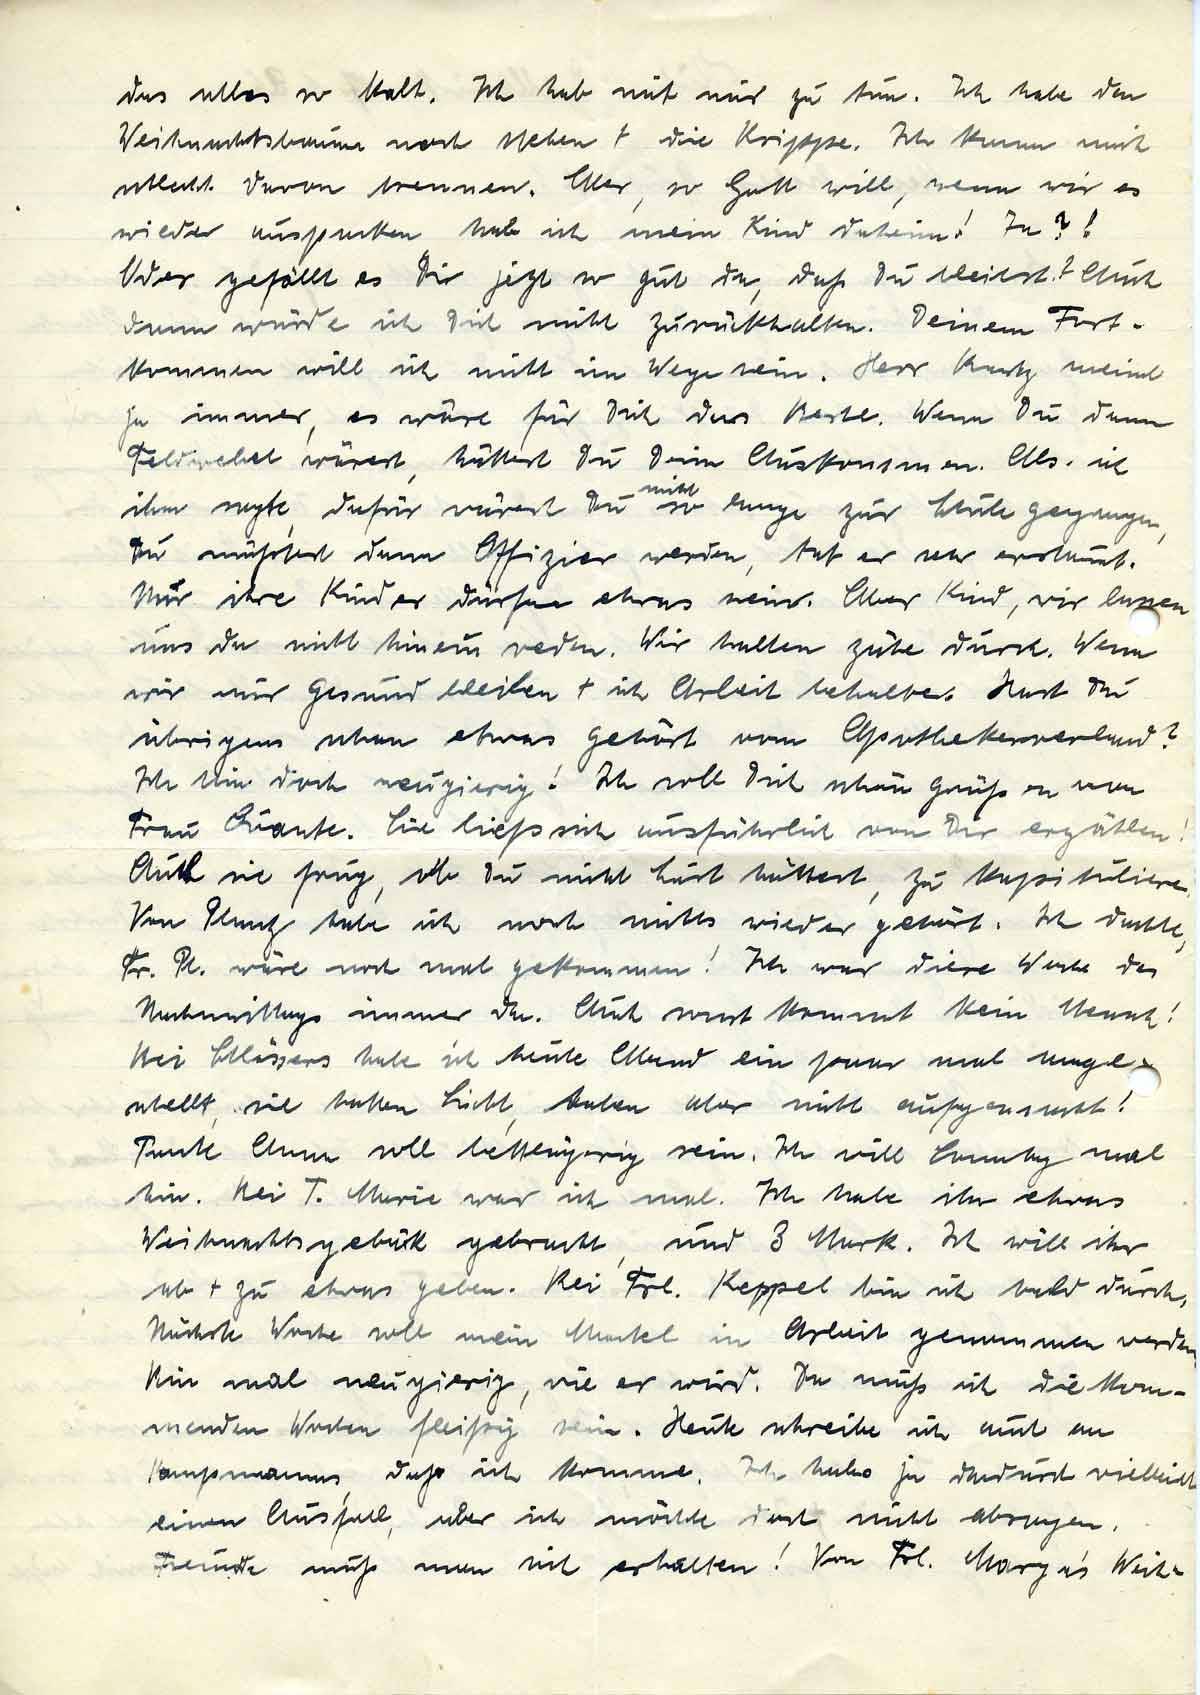 das alles so kalt. Ich hab mit mir zu tun. Ich habe den
Weihnachtsbaum noch stehen + die Krippe. Ich kann mich
schlecht davon trennen. Aber, so Gott will, wenn wir es
wieder auspacken hab ich mein Kind daheim! Ja?!
Oder gefällt es Dir jetzt so gut da, daß Du bleibst? Auch
dann würde ich Dich nicht zurückhalten. Deinem Fort-
kommen will ich nicht im Wege sein. Herr Kurtz meint
ja immer, es wäre für Dich das Beste. Wenn Du dann
Feldwebel wärest, hättest Du Dein Auskommen. Als ich
ihm sagte, dafür wärest Du nicht so lange zur Schule gegangen,
Du müßtest dann Offizier werden, tat er sehr erstaunt.
Nur ihre Kinder dürfen etwas sein. Aber Kind, wir lassen
uns da nicht hinein reden. Wir halten zähe durch. Wenn
wir nur gesund bleiben + ich Arbeit behalte. Hast Du
übrigens schon etwas gehört vom Apothekerverband?
Ich bin doch neugierig! Ich soll Dich schön grüßen von
Frau Quante. Sie ließ sich ausführlich von Dir erzählen!
Auch sie frug, ob Du nicht Lust hättest, zu kapitulieren.
Von Plantz habe ich noch nichts wieder gehört. Ich dachte,
Fr. Pl. wäre noch mal gekommen! Ich war diese Woche des
Nachmittags immer da. Auch sonst kommt kein Mensch!
Bei Schlössers habe ich heute Abend ein paar mal ange-
schellt, sie hatten Licht, haben aber nicht aufgemacht!
Tante Anna soll bettlägerig sein. Ich will Sonntag mal
hin. Bei T. Marie war ich mal. Ich habe ihr etwas
Weihnachtsgebäck gebracht, und 3 Mark. Ich will ihr
ab + zu etwas geben. Bei Frl. Keppel bin ich bald durch.
Nächste Woche soll mein Mantel in Arbeit genommen werden.
Bin mal neugierig, wie er wird. Da muß ich die kom-
menden Wochen fleißig sein. Heute schreibe ich auch an
Kampmanns, daß ich komme. Ich habe ja dadurch vielleicht
einen Ausfall, aber ich möchte dort nicht absagen.
Freunde muß man sich erhalten! Von Frl. Marga's Weih-